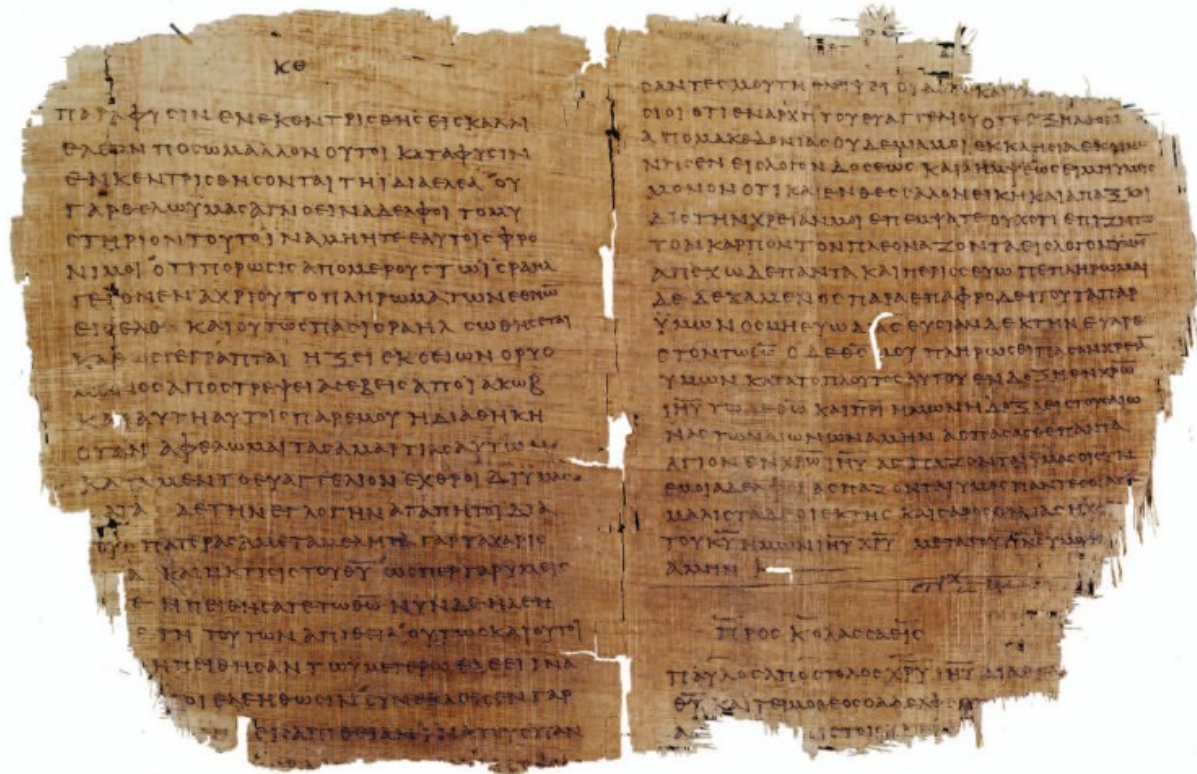 ΚΘ
ΠΑΡΑΦΥϹΙΝΕΝΕΚΕΝΤΡΙϹΘΗϹΕΙϹΚΑΛΛΙ
ΕΛΕΟΝΠΟϹΩΜΑΛΛΟΝΟΥΤΟΙΚΑΤΑΦΥϹΙΝ
ΕΝΚΕΝΤΡΙϹΘΗϹΟΝΤΑΙΤΗΙΔΙΑΕΛΕΑΟΥ
ΓΑΡΘΕΛΩΥΜΑϹΑΓΝΟΕΙΝΑΔΕΛΦΟΙΤΟΜΥ
ϹΤΗΡΙΟΝΤΟΥΤΟΙΝΑΜΗΗΤΕΕΑΥΤΟΙϹΦΡΟ
ΝΙΜΟΙΟΤΙΠΟΡΩϹΙϹΑΠΟΜΕΡΟΥϹΤΩΙϹΡΑΗΛ
ΓΕΓΟΝΕΝΑΧΡΙΟΥΤΟΠΛΗΡΩΜΑΤΩΝΕΘΝΩ̅
ΕΙϹΕΛΘΚΑΙΟΥΤΩϹΠΑϹΙϹΡΑΗΛϹΩΘΗϹΕΤΑΙ
ΚΑΘΩϹΓΕΓΡΑΠΤΑΙΗΞΕΙΕΚϹΕΙΩΝΟΡΥΟ
ΜΕΝΟϹΑΠΟϹΤΡΕΨΕΙΑϹΕΒΕΙϹΑΠΟΙΑΚΩΒ
ΚΑΙΑΥΤΗΑΥΤΟΙϹΠΑΡΕΜΟΥΗΔΙΑΘΗΚΗ
ΟΤΑΝΑΦΕΛΩΜΑΙΤΑϹΑΜΑΡΤΙΑϹΑΥΤΩΝ
ΚΑΤΑΜΕΝΤΟΕΥΑΓΓΕΛΙΟΝΕΧΘΡΟΙΔΙΥΜΑϹ
ΑΤΑΔΕΤΗΝΕΓΛΟΓΗΝΑΓΑΠΗΤΟΙΔΙΑ
ΤΟΥϹΠΑΤΕΡΑϹΑΜΕΤΑΜΕΛΗΤΑΓΑΡΤΑΧΑΡΙϹ
ΑΚΑΙΗΚΤΙϹΙϹΤΟΥΘ̅Υ̅ΩϹΠΕΡΓΑΡΥΜΕΙϹ
ΕΗΠΕΙΘΗϹΑΤΕΤΩΘ̅Ω̅ΝΥΝΔΕΗΛΕΗ
ΕΤΗΤΟΥΤΩΝΑΠΙΘΕΙΑΟΥΤΩϹΚΑΙΟΥΤΟΙ
ΗΠΕΙΘΗϹΑΝΤΩΥΜΕΤΕΡΩΕΛΕΕΙΙΝΑ
ΤΟΙΕΛΕΗΘΩϹΙΝϹΥΝΕΚΛΕΙϹΕΝΓΑΡ
ΕΙϹΑΠΙΘΕΙΑΝΙΝΑΤΟΥϹΠΑΝ
ϹΑΝΤΕϹΜΟΥΤΗ
ϹΙΟΙΟΤΙΕΝΑΡΧΗΤΟΥΕΥΑΓΓΕΛΙΟΥΟΤΕΕΞΗΛΘΟΝ
ΑΠΟΜΑΚΕΔΟΝΙΑϹΟΥΔΕΜΙΑΜΟΙΕΚΚΛΗϹΙΑΕΚΟΙΝΩ
ΝΗϹΕΝΕΙϹΛΟΓΟΝΔΟϹΕΩϹΚΑΙΛΗΜΨΕΩϹΕΙΜΗΥΜΕΙϹ
ΜΟΝΟΝΟΤΙΚΑΙΕΝΘΕϹϹΑΛΟΝΕΙΚΗΚΑΙΑΠΑΞΚΑΙ
ΔΙϹΤΗΝΧΡΕΙΑΝΜΟΙΕΠΕΜΨΑΤΕΟΥΧΟΤΙΕΠΙΖΗΤΩ
ΤΟΝΚΑΡΠΟΝΤΟΝΠΛΕΟΝΑΖΟΝΤΑΕΙϹΛΟΓΟΝΥΜΩ̅
ΑΠΕΧΩΔΕΠΑΝΤΑΚΑΙΠΕΡΙϹϹΕΥΩΠΕΠΛΗΡΩΜΑΙ
ΔΕΔΕΞΑΜΕΝΟϹΠΑΡΑΕΠΑΦΡΟΔΕΙΤΟΥΤΑΠΑΡ
ΥΜΩΝΟϹΜΗΕΥΩΔΙΑϹΘΥϹΙΑΝΔΕΚΤΗΝΕΥΑΡΕ
ϹΤΟΝΤΩΘ̅Ω̅ΟΔΕΘ̅Ϲ̅ΜΟΥΠΛΗΡΩϹΕΙΠΑϹΑΝΧΡΕΙΑ
ΥΜΩΝΚΑΤΑΤΟΠΛΟΥΤΟϹΑΥΤΟΥΕΝΔΟΞΗΕΝΧ̅Ρ̅Ω̅
Ι̅Η̅Υ̅ΤΩΔΕΘ̅Ω̅ΚΑΙΠ̅Ρ̅Ι̅ΗΜΩΝΗΔΟΞΑΕΙϹΤΟΥϹΑΙΩ
ΝΑϹΤΩΝΑΙΩΝΩΝΑΜΗΝΑϹΠΑϹΑϹΘΕΠΑΝΤΑ
ΑΓΙΟΝΕΝΧ̅Ρ̅Ω̅Ι̅Η̅Υ̅ΑϹΠΑΖΟΝΤΑΙΥΜΑϹΟΙϹΥΝ
ΕΜΟΙΑΔΕΛΦΟΙΑϹΠΑΖΟΝΤΑΙΥΜΑϹΠΑΝΤΕϹΟΙΑΓΙ
ΜΑΛΙϹΤΑΔΕΟΙΕΚΤΗϹΚΑΙϹΑΡΟϹΟΙΚΙΑϹΗΧΑΡ
ΤΟΥΚ̅Υ̅ΗΜΩΝΙ̅Η̅Υ̅Χ̅Ρ̅Υ̅ΜΕΤΑΤΟΥΠΝΕΥΜΑ
ΑΜΗΝ
ΠΡΟϹΚΟΛΑϹϹΑΕΙϹ
ΠΑΥΛΟϹΑΠΟϹΤΟΛΟϹΧ̅Ρ̅Υ̅Ι̅Η̅Υ̅ΔΙΑΘΕΛ
Θ̅Υ̅ΚΑΙΤΕΙΜΟΘΕΟϹΟΑΔΕΛΦΟ